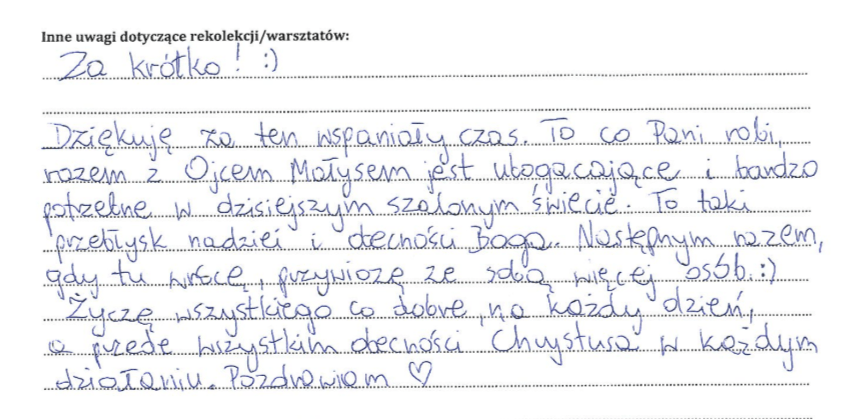 Inne uwagi dotyczące rekolekcji/warsztatów:
Za krótko! :)
Dziękuję za ten wspaniały czas. To co Pani robi,
razem z Ojcem Małysem jest ubogacające i bardzo
potrzebne w dzisiejszym szalonym świecie. To taki
przebłysk nadziei i obecności Boga. Następnym razem,
gdy tu wrócę, przywiozę ze sobą więcej osób. :)
Życzę wszystkiego co dobre, na każdy dzień,
a przede wszystkim obecności Chrystusa w każdym
działaniu. Pozdrawiam ♡